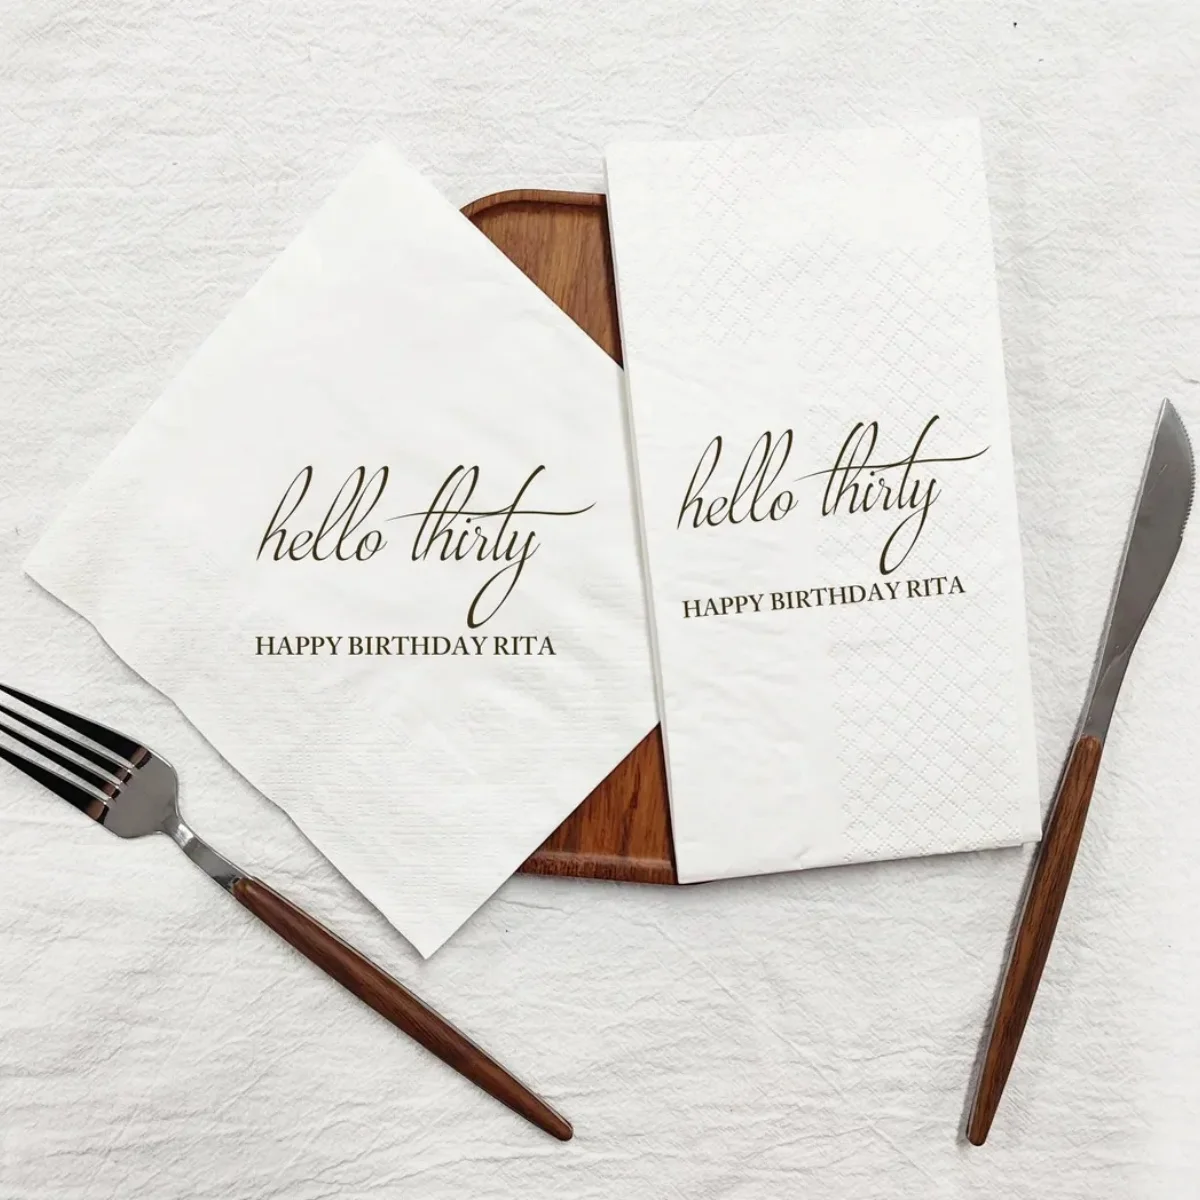 hello thirty
HAPPY BIRTHDAY RITA
hello thirty
HAPPY BIRTHDAY RITA